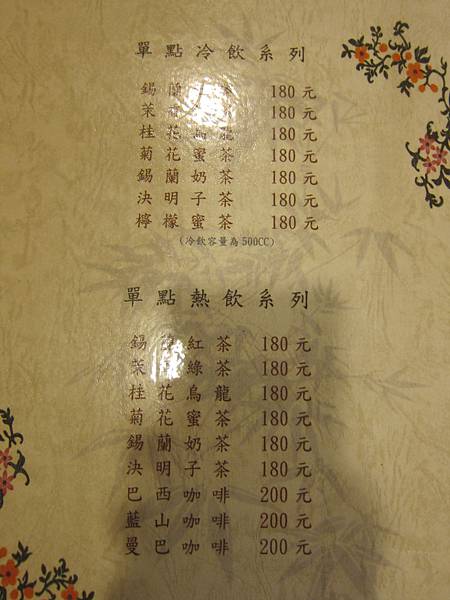 單點冷飲系列
錫蘭 茶 180元
茉 茶 180元
桂花烏龍 180元
菊花蜜茶 180元
錫蘭奶茶 180元
決明子茶 180元
檸檬蜜茶 180元
(冷飲容量為500CC)
單點熱飲系列
錫 紅茶 180元
茉 綠茶 180元
桂花烏龍 180元
菊花蜜茶 180元
錫蘭奶茶 180元
決明子茶 180元
巴西咖啡 200元
藍山咖啡 200元
曼巴咖啡 200元